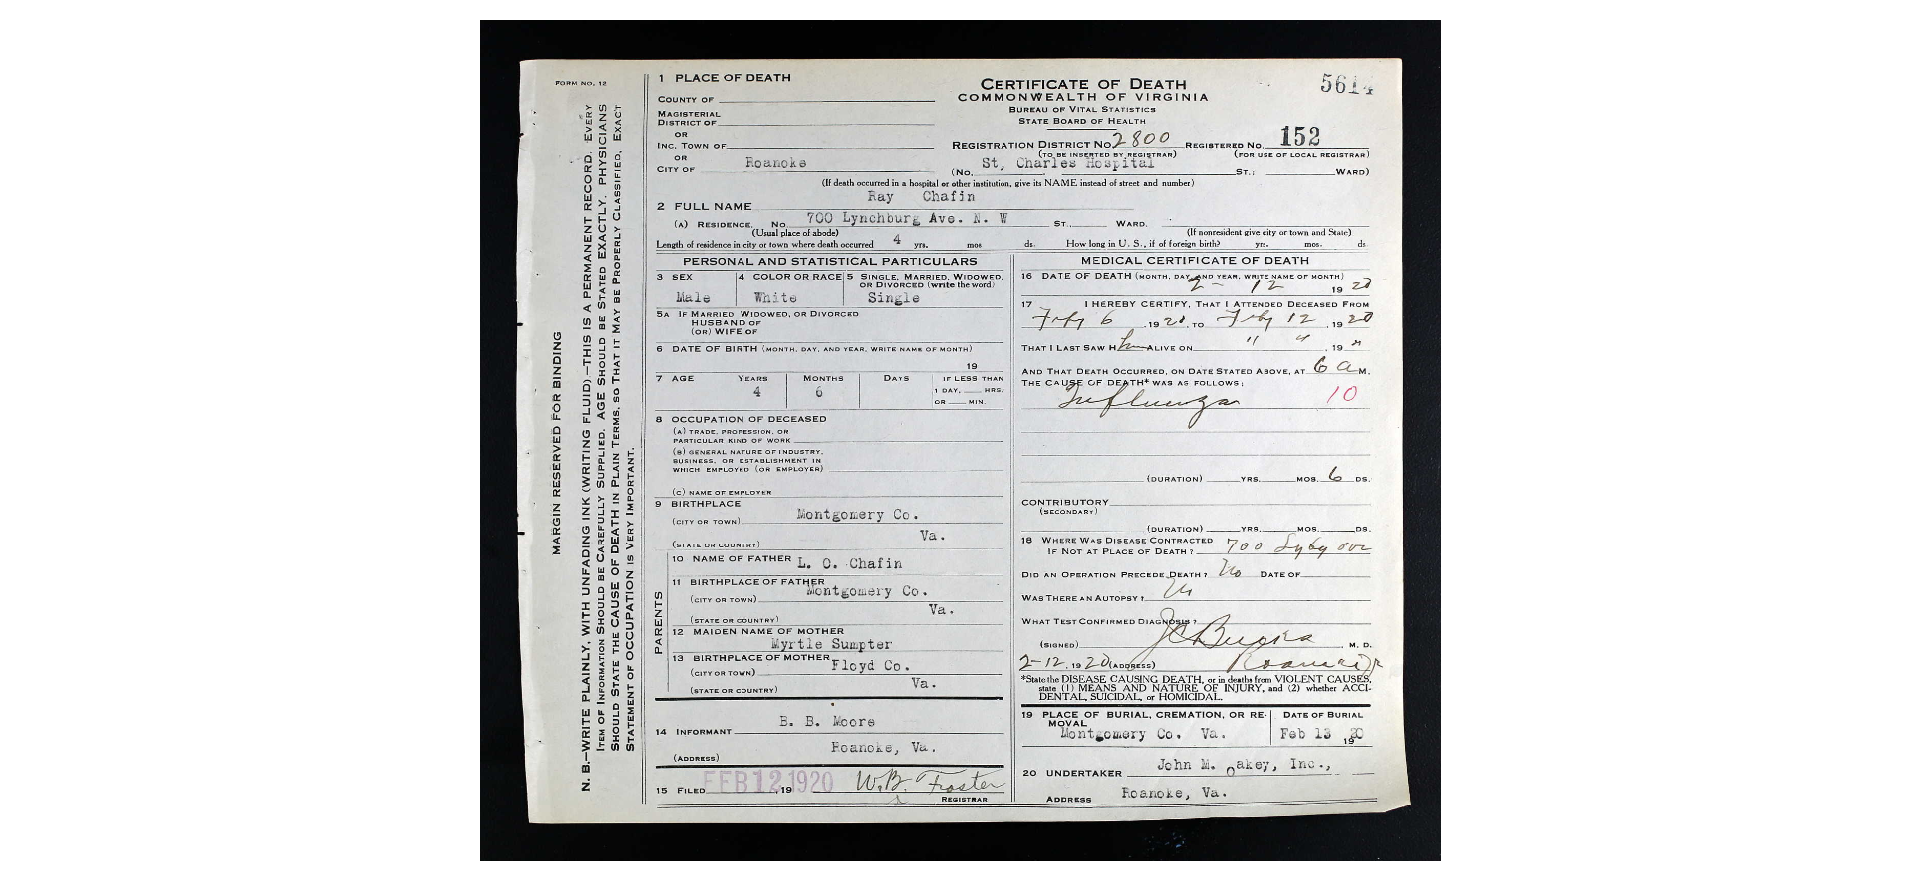 FORM NO. 12
MARGIN RESERVED FOR BINDING
N. B.—WRITE PLAINLY, WITH UNFADING INK (WRITING FLUID).—THIS IS A PERMANENT RECORD. EVERY
ITEM OF INFORMATION SHOULD BE CAREFULLY SUPPLIED. AGE SHOULD BE STATED EXACTLY. PHYSICIANS
SHOULD STATE THE CAUSE OF DEATH IN PLAIN TERMS, SO THAT IT MAY BE PROPERLY CLASSIFIED. EXACT
STATEMENT OF OCCUPATION IS VERY IMPORTANT.
1 PLACE OF DEATH
COUNTY OF
MAGISTERIAL
DISTRICT OF
OR
INC. TOWN OF
OR
CITY OF Roanoke
CERTIFICATE OF DEATH
COMMONWEALTH OF VIRGINIA
BUREAU OF VITAL STATISTICS
STATE BOARD OF HEALTH
5614
REGISTRATION DISTRICT NO. 2800 REGISTERED NO. 152
(TO BE INSERTED BY REGISTRAR) (FOR USE OF LOCAL REGISTRAR)
(NO. St, Charles Hospital ST.; WARD)
(If death occurred in a hospital or other institution, give its NAME instead of street and number)
2 FULL NAME Ray Chafin
(A) RESIDENCE. NO. 700 Lynchburg Ave. N. W ST., WARD.
(Usual place of abode) (If nonresident give city or town and State)
Length of residence in city or town where death occurred 4 yrs. mos ds. How long in U. S., if of foreign birth? yrs. mos. ds
PERSONAL AND STATISTICAL PARTICULARS
3 SEX Male
4 COLOR OR RACE White
5 SINGLE, MARRIED, WIDOWED,
OR DIVORCED (write the word)
Single
5A IF MARRIED WIDOWED, OR DIVORCED
HUSBAND OF
(OR) WIFE OF
6 DATE OF BIRTH (MONTH, DAY, AND YEAR, WRITE NAME OF MONTH)
19
7 AGE YEARS MONTHS DAYS IF LESS THAN
4 6 1 DAY, HRS.
OR MIN.
8 OCCUPATION OF DECEASED
(A) TRADE, PROFESSION, OR
PARTICULAR KIND OF WORK
(B) GENERAL NATURE OF INDUSTRY,
BUSINESS, OR ESTABLISHMENT IN
WHICH EMPLOYED (OR EMPLOYER)
(C) NAME OF EMPLOYER
9 BIRTHPLACE
(CITY OR TOWN) Montgomery Co.
(STATE OR COUNTRY) Va.
PARENTS
10 NAME OF FATHER L. C. Chafin
11 BIRTHPLACE OF FATHER
(CITY OR TOWN) Montgomery Co.
(STATE OR COUNTRY) Va.
12 MAIDEN NAME OF MOTHER
Myrtle Sumpter
13 BIRTHPLACE OF MOTHER
(CITY OR TOWN) Floyd Co.
(STATE OR COUNTRY) Va.
14 INFORMANT B. B. Moore
(ADDRESS) Roanoke, Va.
15 FILED FEB 12 1920, 19 W.B. Foster
REGISTRAR
MEDICAL CERTIFICATE OF DEATH
16 DATE OF DEATH (MONTH, DAY, AND YEAR, WRITE NAME OF MONTH)
2 - 12 1920
17 I HEREBY CERTIFY, THAT I ATTENDED DECEASED FROM
Feby 6, 1920, TO Feby 12, 1920
THAT I LAST SAW H im ALIVE ON " " , 19
AND THAT DEATH OCCURRED, ON DATE STATED ABOVE, AT 6 a M.
THE CAUSE OF DEATH* WAS AS FOLLOWS:
Influenza 10
(DURATION) YRS. MOS. 6 DS.
CONTRIBUTORY
(SECONDARY)
(DURATION) YRS. MOS. DS.
18 WHERE WAS DISEASE CONTRACTED
IF NOT AT PLACE OF DEATH? 700 Lybg ave
DID AN OPERATION PRECEDE DEATH? No DATE OF
WAS THERE AN AUTOPSY?
WHAT TEST CONFIRMED DIAGNOSIS?
(SIGNED) M. D.
2-12, 1920 (ADDRESS)
*State the DISEASE CAUSING DEATH, or in deaths from VIOLENT CAUSES,
state (1) MEANS AND NATURE OF INJURY, and (2) whether ACCI-
DENTAL, SUICIDAL, or HOMICIDAL.
19 PLACE OF BURIAL, CREMATION, OR RE-
MOVAL
Montgomery Co. Va.
DATE OF BURIAL
Feb 13 1920
20 UNDERTAKER John M. Oakey, Inc.,
ADDRESS Roanoke, Va.